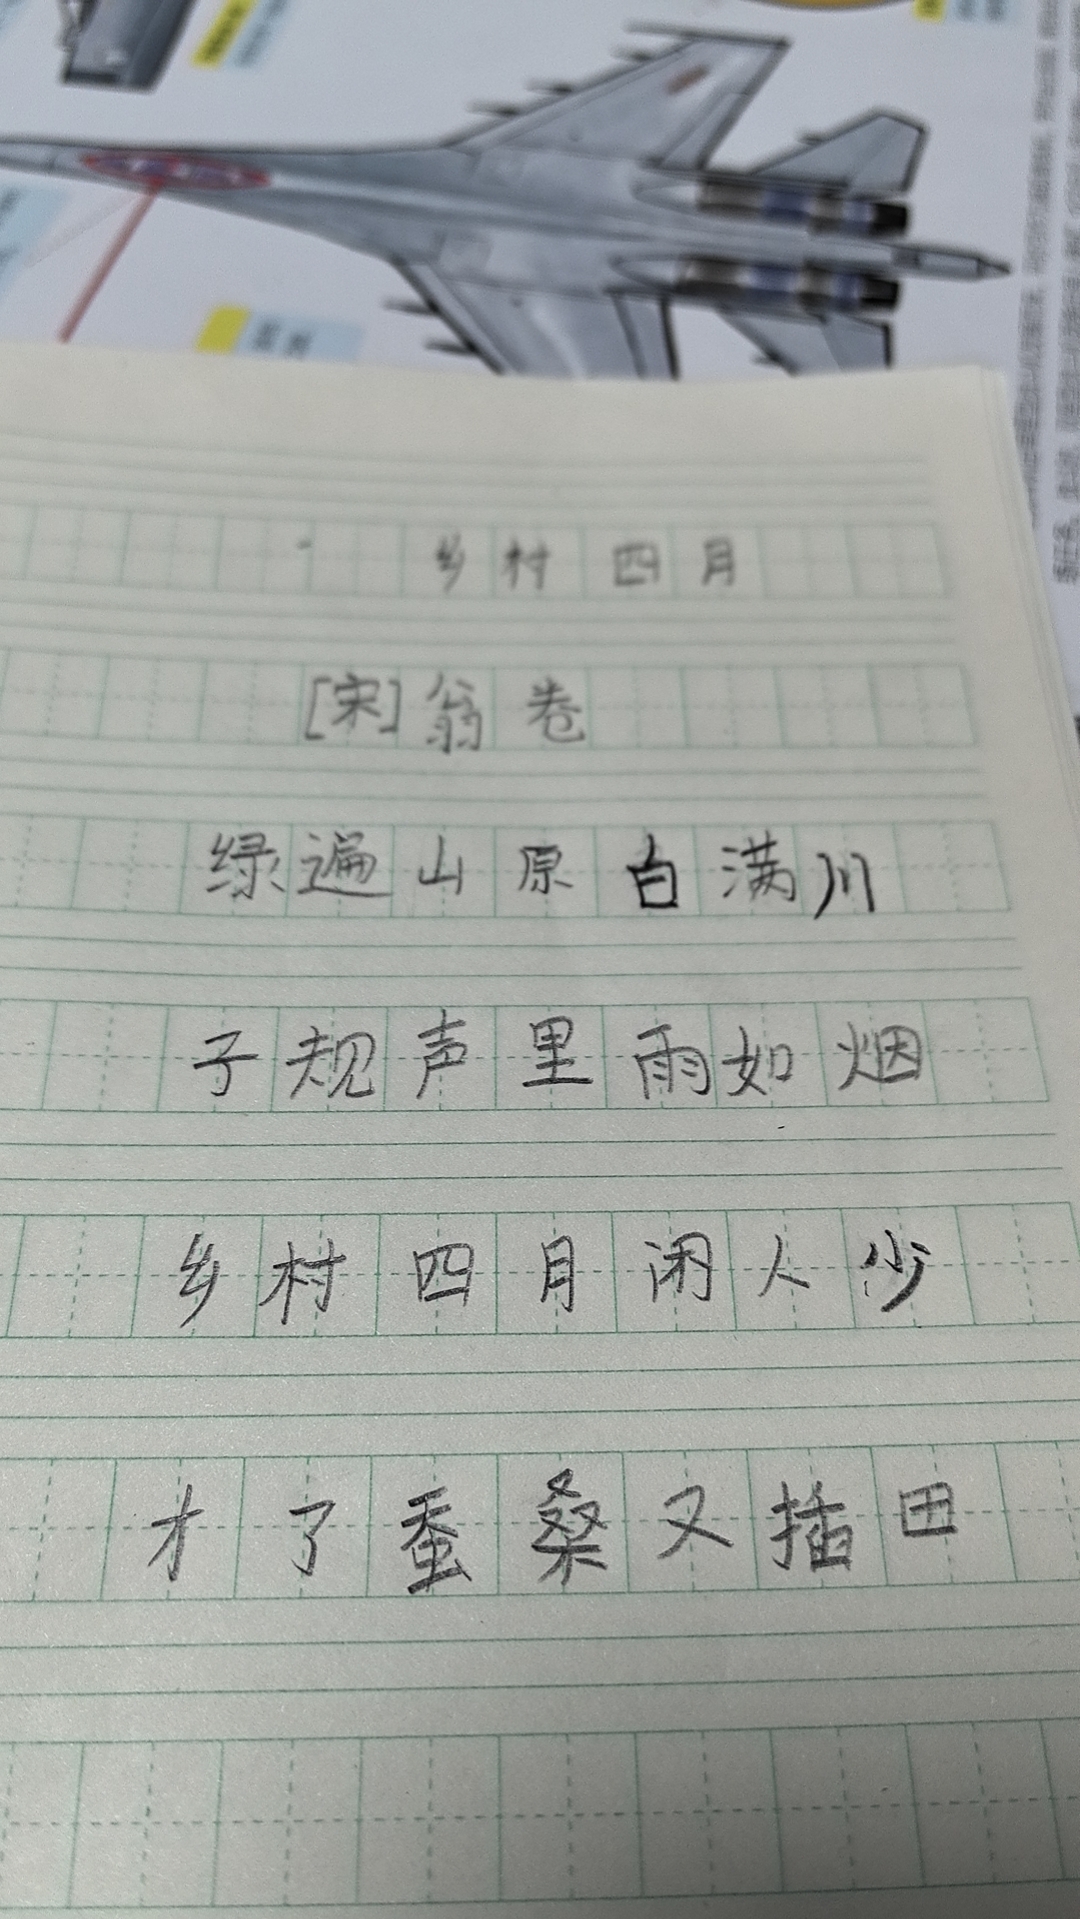 乡村四月
[宋]翁卷
绿遍山原白满川
子规声里雨如烟
乡村四月闲人少
才了蚕桑又插田